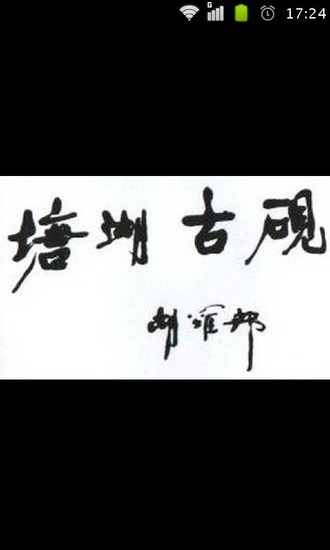 17:24
塘湖古硯
胡耀邦